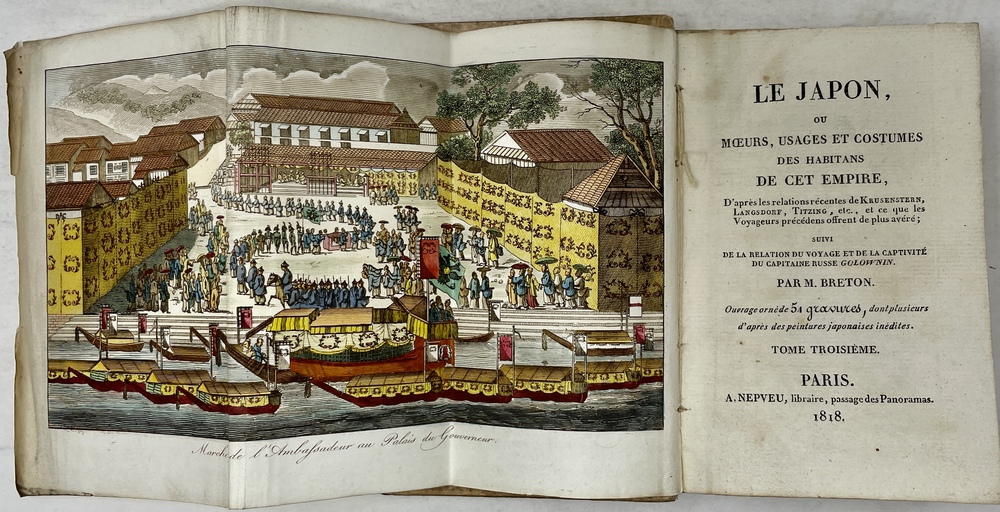 Marche de l'Ambassadeur au Palais du Gouverneur.
LE JAPON,
OU
MŒURS, USAGES ET COSTUMES
DES HABITANS
DE CET EMPIRE,
D'après les relations récentes de KRUSENSTERN,
LANGSDORF, TITZING, etc., et ce que les
Voyageurs précédens offrent de plus avéré;
SUIVI
DE LA RELATION DU VOYAGE ET DE LA CAPTIVITÉ
DU CAPITAINE RUSSE GOLOWNIN.
PAR M. BRETON.
Ouvrage orné de 51 gravures, dont plusieurs
d'après des peintures japonaises inédites.
TOME TROISIÈME.
PARIS.
A. NEPVEU, libraire, passage des Panoramas.
1818.